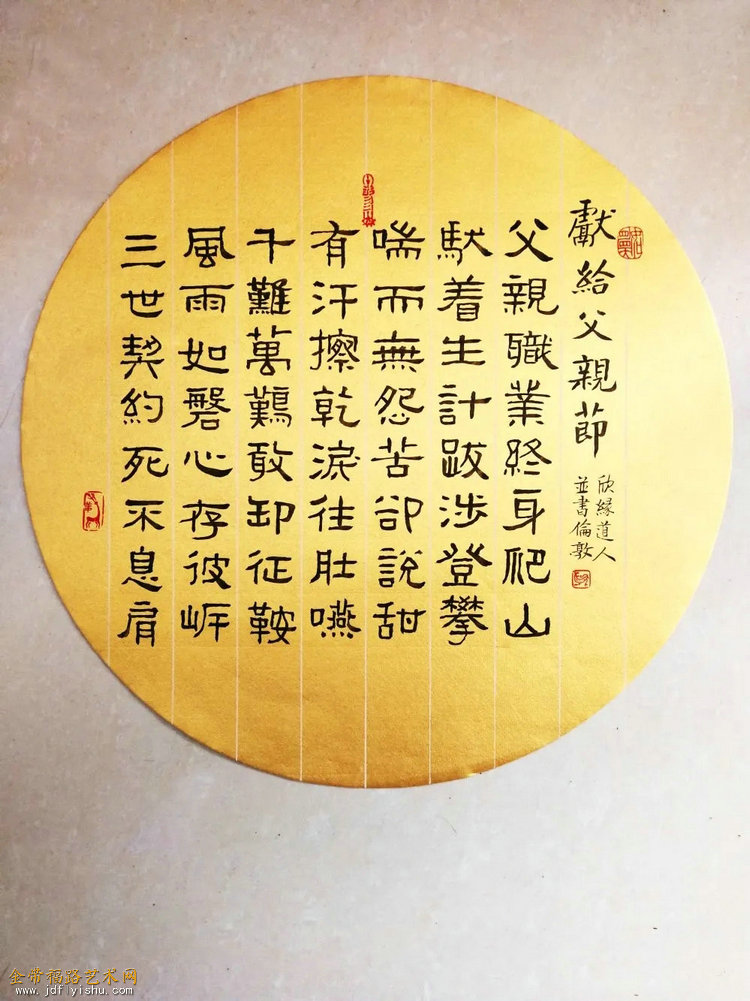 獻給父親節
欣緣道人
並書倫敦
父親職業終身爬山
馱着生計跋涉登攀
喘而無怨苦卻說甜
有汗擦乾淚往肚嚥
千難萬難敢卸征鞍
風雨如磐心存彼岸
三世契約死不息肩
金带福路艺术网
www.jdflyishu.com